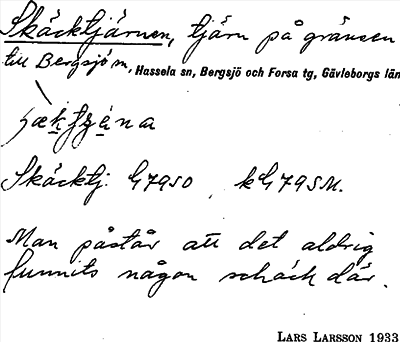 Skäcktjärnen, tjärn på gränsen
till Bergsjö sn, Hassela sn, Bergsjö och Forsa tg, Gävleborgs län
Skäcktj. G79SO , kG79SM.
Man påstår att det aldrig
funnits någon schäck där.
LARS LARSSON 1933